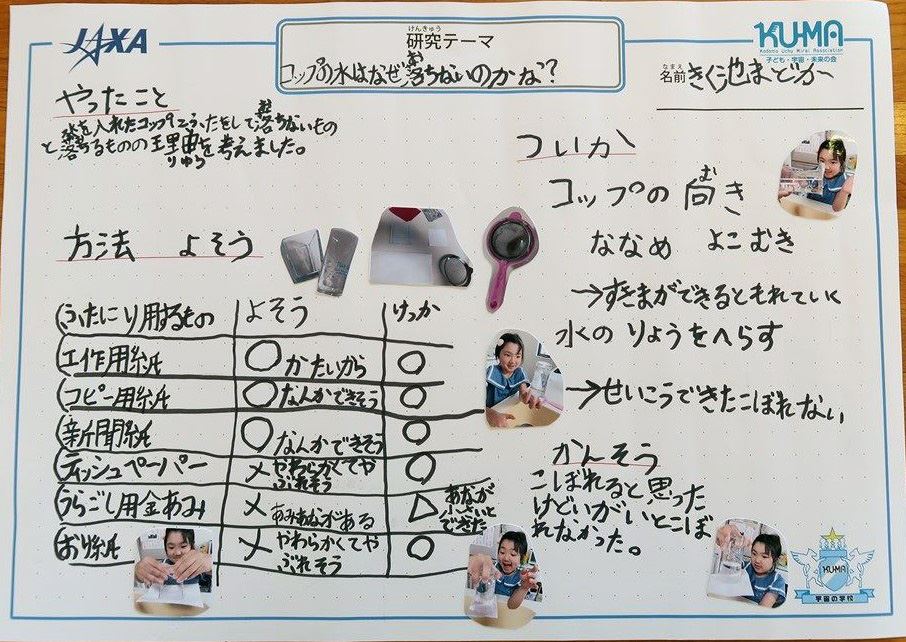 JAXA
けんきゅう
研究テーマ
コップの水はなぜ落ちないのかな?
KU-MA
Kodomo Uchu Mirai Association
子ども・宇宙・未来の会
なまえ
名前 きく池まどか
やったこと
水を入れたコップにふたをして落ちないもの
と落ちるものの理由を考えました。
りゆう
方法 よそう
ふたにり用するもの よそう けっか
工作用紙 ○かたいから ○
コピー用紙 ○なんかできそう ○
新聞紙 ○なんかできそう ○
ティッシュペーパー ×やわらかくてや
ぶれそう ○
うらごし用金あみ ×あみあながある △あなが
小さいと
できた
おり紙 ×やわらかくてや
ぶれそう ○
ついか
コップの向き
ななめ よこむき
→すきまができるともれていく
水のりょうをへらす
→せいこうできたこぼれない
かんそう
こぼれると思った
けどいがいとこぼ
れなかった。
KU-MA
宇宙の学校